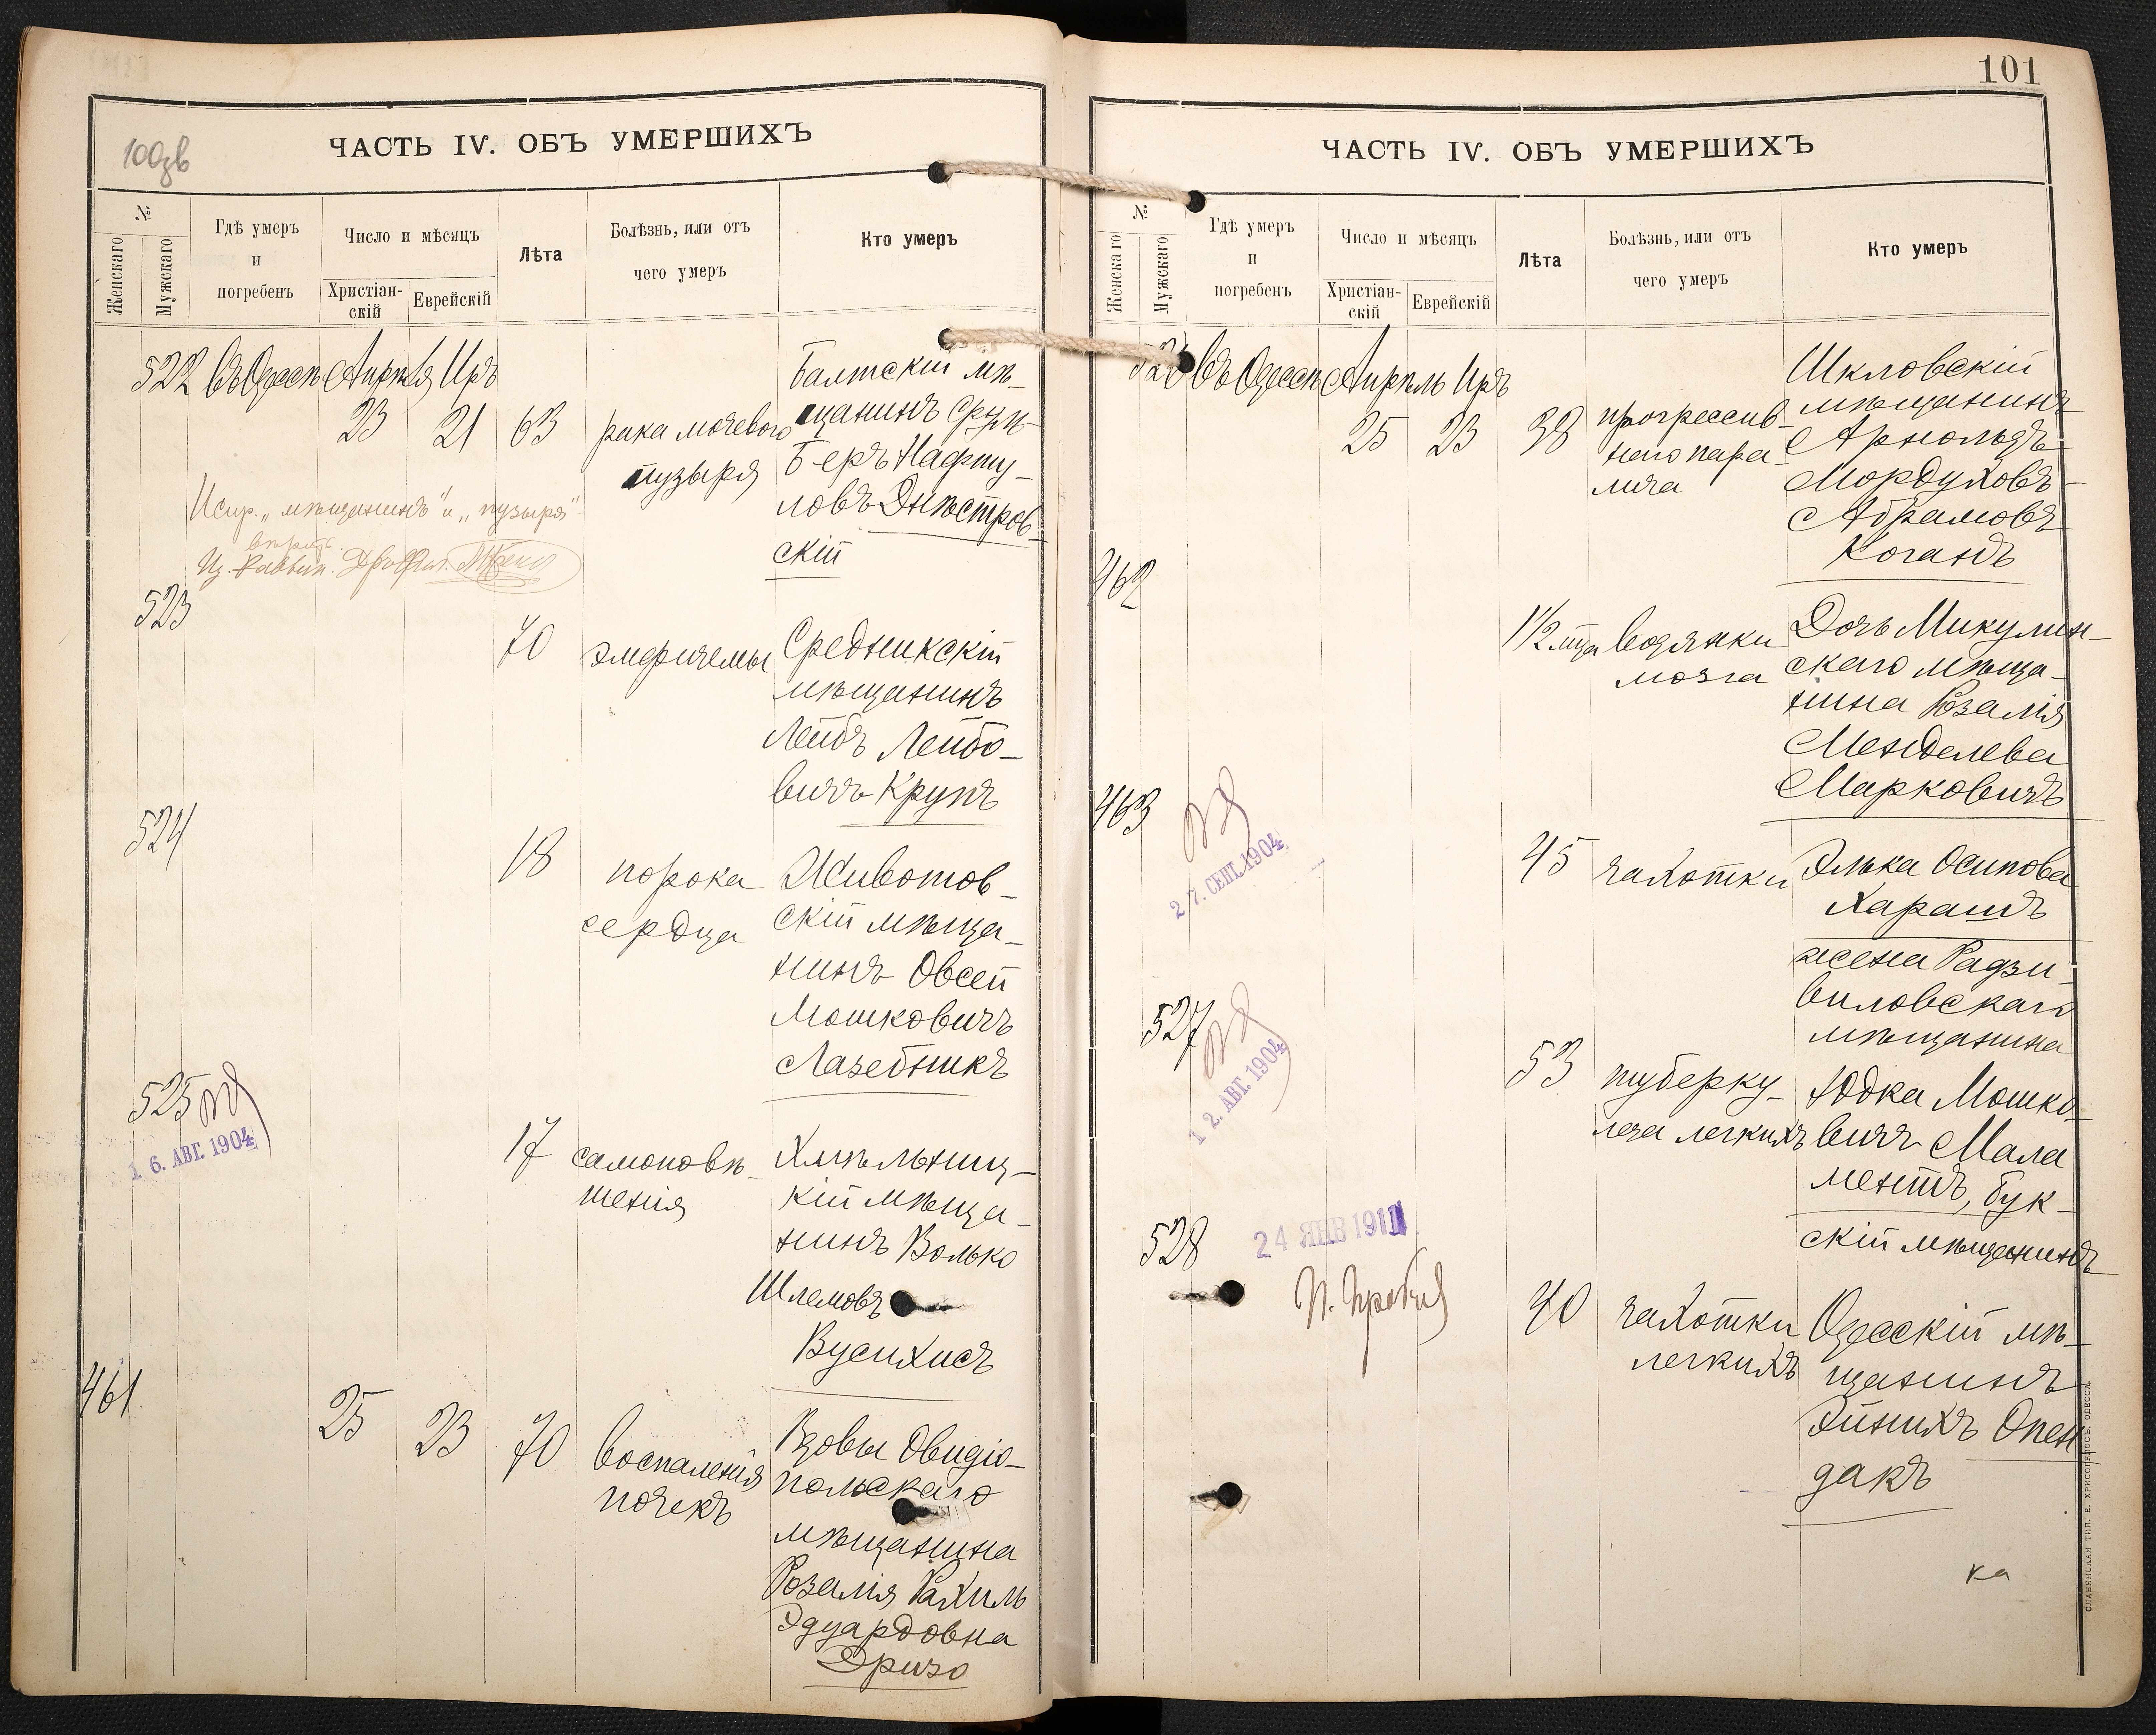 100зв
ЧАСТЬ IV. ОБЪ УМЕРШИХЪ
№
Женскаго
Мужскаго
Гдѣ умеръ
и
погребенъ
Число и мѣсяцъ
Христіан-
скій
Еврейскій
Лѣта
Болѣзнь, или отъ
чего умеръ
Кто умеръ
522 Въ Одессѣ Апрѣля Иръ
23 21 63
рака мочевого
пузыря
Балтскій мѣ-
щанинъ Сруль
Беръ Нафту-
ловъ Днѣстров-
скій
Испр. „мѣщанинъ" и „пузыря"
вѣрить.
523
70
эмфиземы
Средникскій
мѣщанинъ
Лейбъ Лейбо-
вичъ Крупъ
524
18
порока
сердца
Животов-
скій мѣща-
нинъ Овсей
Мошковичъ
Лазебникъ
525
16. АВГ. 1904
17
самоповѣ-
шенія
Хмѣльниц-
кій мѣща-
нинъ Волько
Шлемовъ
Вусихисъ
461
25 23 70
воспаленія
почекъ
Вдовы Овидіо-
польскаго
мѣщанина
Розалія Рахиль
Эдуардовна
Эризо
101
ЧАСТЬ IV. ОБЪ УМЕРШИХЪ
№
Женскаго
Мужскаго
Гдѣ умеръ
и
погребенъ
Число и мѣсяцъ
Христіан-
скій
Еврейскій
Лѣта
Болѣзнь, или отъ
чего умеръ
Кто умеръ
526 Въ Одессѣ Апрѣль Иръ
25 23 38
прогрессив-
наго пара-
лича
Шкловскій
мѣщанинъ
Арнольдъ-
Мордуховъ-
Абрамовъ
Коганъ
462
1 1/2 мца
водянки
мозга
Дочь Микулин-
скаго мѣща-
нина Розалія
Менделева
Марковичъ
463
27. СЕНТ. 1904
45
чахотки
Элька Осипова
Харашъ
жена Радзи-
виловскаго
мѣщанина
527
12. АВГ. 1904
53
туберку-
леза легкихъ
Юдка Мошко-
вичъ Мала
ментъ, Бук-
скій мѣщанинъ
528
24 ЯНВ 1911
40
чахотки
легкихъ
Одесскій мѣ-
щанинъ
Эйнихъ Опен
дакъ
ка
СЛАВЯНСКАЯ ТИП. Е. ХРИСОГЕЛОСЪ, ОДЕССА.